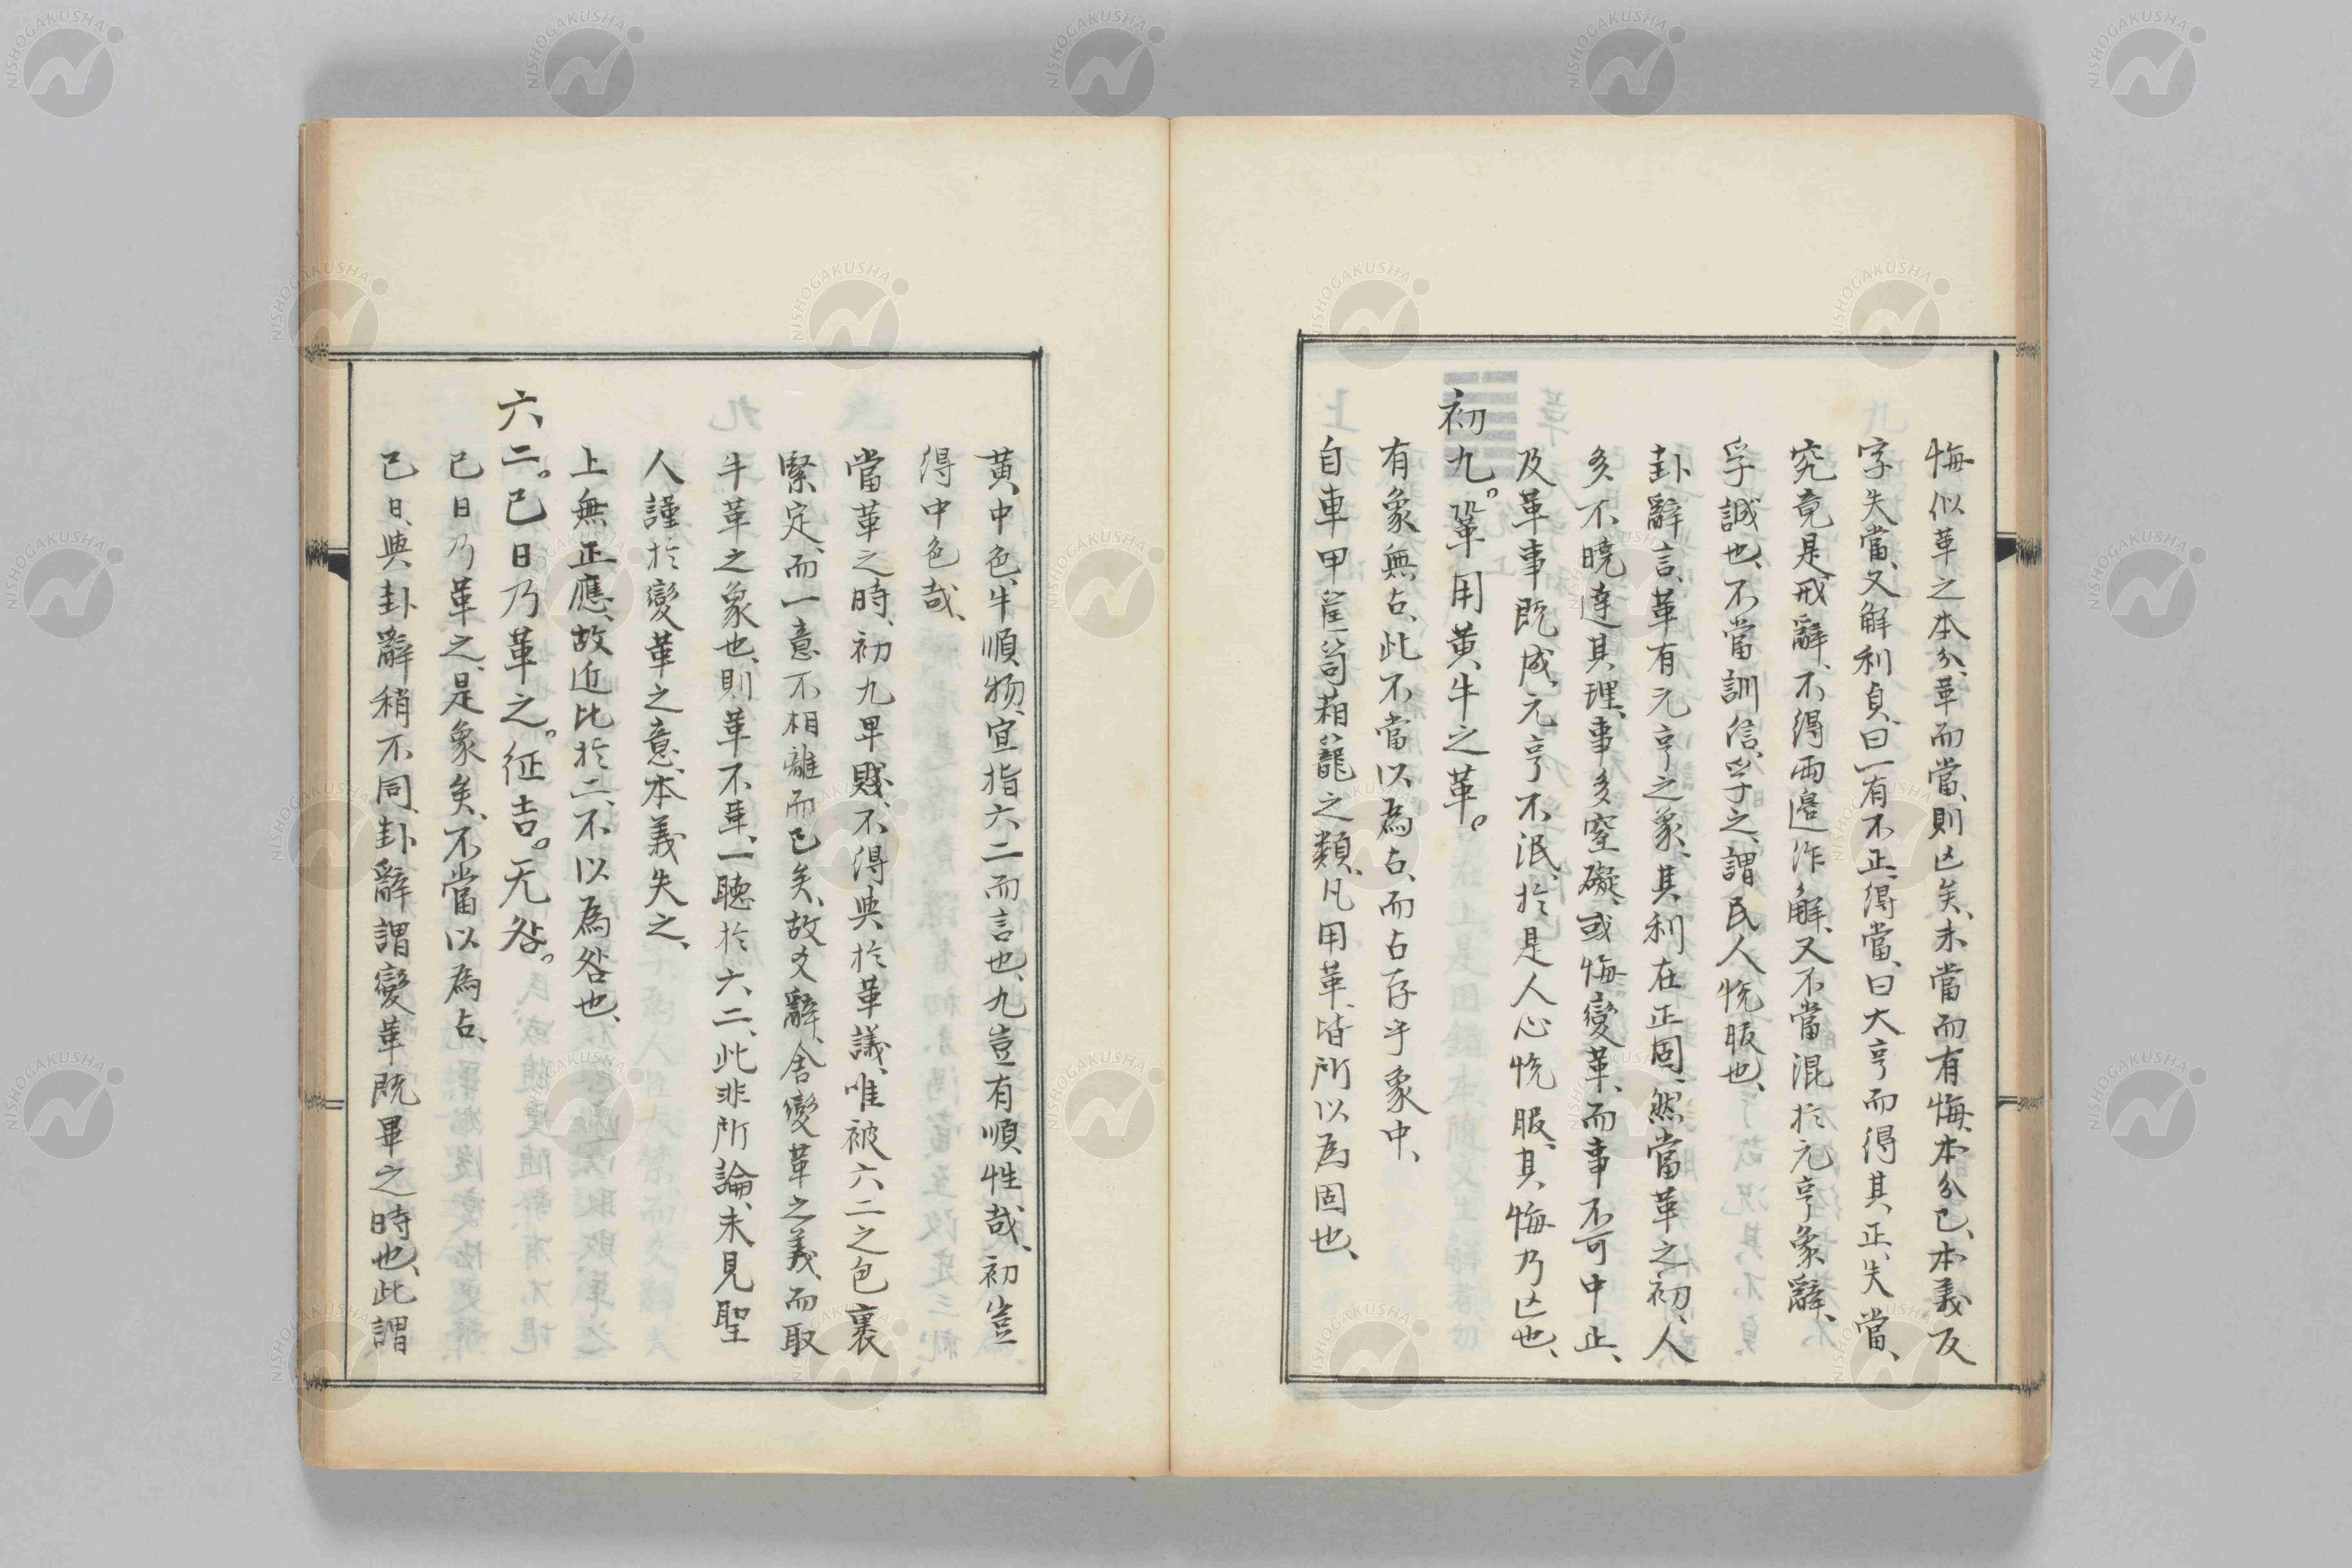 悔似革之本分、革而當、則凶矣、未當而有悔、本分已、本義反
字失當、又解利貞、曰一有不正、得當、曰大亨而得其正、失當、
究竟是戒辭、不得兩邉作解、又不當混於元亨象辭、
孚誠也、不當訓信、孚之、謂民人悦服也、
卦辭言、革有元亨之象、其利在正固、然當革之初、人
多不曉達其理、事多窒礙、或悔變革、而事不可中止、
及革事既成、元亨不泯、於是人心悦服、其悔乃亡也、
初九。鞏用黄牛之革。
有象無占、此不當以為占、而占存乎象中、
自車甲筐笥箱籠之類、凡用革、皆所以為固也、
黄中色、牛順物、宜指六二而言也、九豈有順性哉、初豈
得中色哉、
當革之時、初九卑賤、不得與於革議、唯被六二之包裹
緊定、而一意不相離而已矣、故爻辭、舍變革之義、而取
牛革之象也、則革不革、一聽於六二、此非所論、未見聖
人謹於變革之意、本義失之、
上無正應、故近比於二、不以為咎也、
六二。已日乃革之。征吉。无咎。
已日乃革之、是象矣、不當以為占、
已日、與卦辭稍不同、卦辭謂變革既畢之時也、此謂
NISHOGAKUSHA